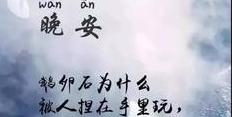 wǎn ān
晚安
鹅卵石为什么
被人捏在手里玩，